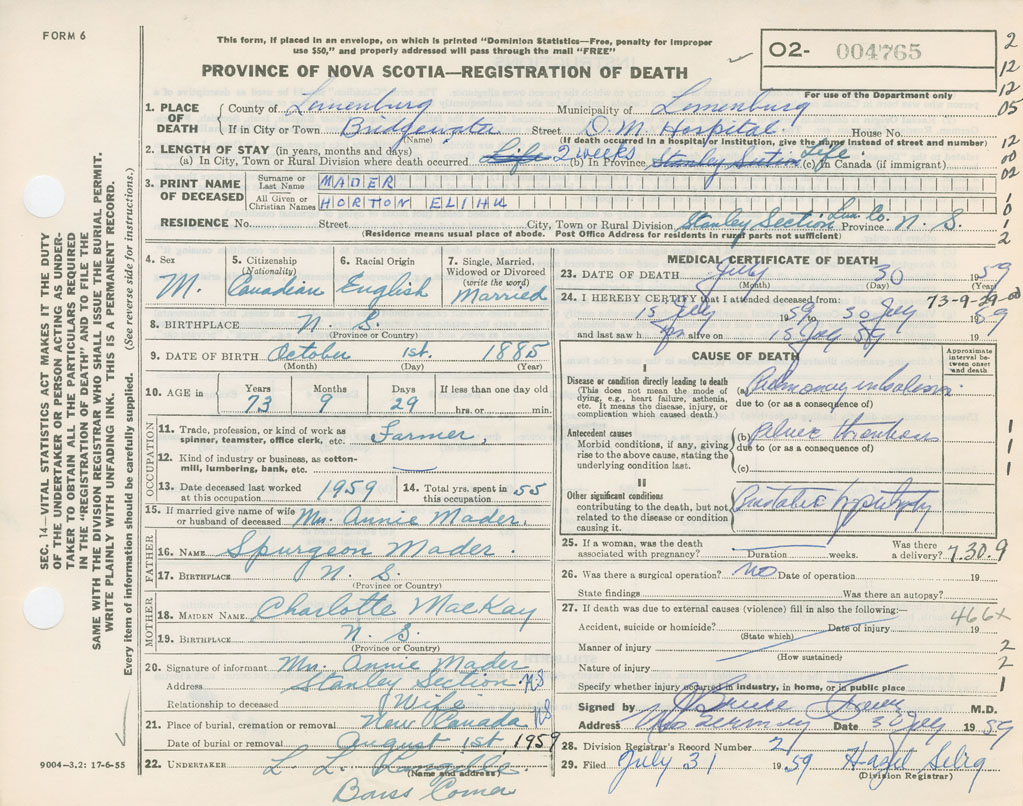 FORM 6
This form, if placed in an envelope, on which is printed "Dominion Statistics—Free, penalty for improper
use $50," and properly addressed will pass through the mail "FREE"
PROVINCE OF NOVA SCOTIA—REGISTRATION OF DEATH
O2- 004765
For use of the Department only
2
12
12
05
12
00
02
1
0
1
2
SEC. 14—VITAL STATISTICS ACT MAKES IT THE DUTY
OF THE UNDERTAKER OR PERSON ACTING AS UNDER-
TAKER TO OBTAIN ALL THE PARTICULARS REQUIRED
IN THE "REGISTRATION OF DEATH" AND TO FILE THE
SAME WITH THE DIVISION REGISTRAR WHO SHALL ISSUE THE BURIAL PERMIT.
WRITE PLAINLY WITH UNFADING INK. THIS IS A PERMANENT RECORD.
Every item of information should be carefully supplied. (See reverse side for instructions.)
1. PLACE OF DEATH
County of Lunenburg Municipality of Lunenburg
If in City or Town Bridgewater Street D. M. Hospital House No.
(Name) (If death occurred in a hospital or institution, give the name instead of street and number)
2. LENGTH OF STAY (in years, months and days)
(a) In City, Town or Rural Division where death occurred Life 2 weeks (b) In Province Stanley Section Life (c) In Canada (if immigrant)
3. PRINT NAME OF DECEASED
Surname or Last Name MADER
All Given or Christian Names HORTON ELIHU
RESIDENCE No. Street City, Town or Rural Division Stanley Section Lun. Co. Province N. S.
(Residence means usual place of abode. Post Office Address for residents in rural parts not sufficient)
4. Sex M.
5. Citizenship (Nationality) Canadian
6. Racial Origin English
7. Single, Married, Widowed or Divorced (write the word) Married
8. BIRTHPLACE N. S.
(Province or Country)
9. DATE OF BIRTH October 1st. 1885
(Month) (Day) (Year)
10. AGE in Years 73 Months 9 Days 29 If less than one day old hrs. or min.
OCCUPATION
11. Trade, profession, or kind of work as spinner, teamster, office clerk, etc. Farmer.
12. Kind of industry or business, as cotton-mill, lumbering, bank, etc.
13. Date deceased last worked at this occupation 1959
14. Total yrs. spent in this occupation 55
15. If married give name of wife or husband of deceased Mrs. Annie Mader.
FATHER
16. NAME Spurgeon Mader.
17. BIRTHPLACE N. S.
(Province or Country)
MOTHER
18. MAIDEN NAME Charlotte MacKay
19. BIRTHPLACE N. S.
(Province or Country)
20. Signature of informant Mrs. Annie Mader
Address Stanley Section NS
Relationship to deceased Wife
21. Place of burial, cremation or removal New Canada NS
Date of burial or removal August 1st, 1959
22. UNDERTAKER L. L.
(Name and address)
Corner
9004—3.2: 17-6-55
MEDICAL CERTIFICATE OF DEATH
23. DATE OF DEATH July 30 1959
(Month) (Day) (Year)
73-9-29-00
24. I HEREBY CERTIFY that I attended deceased from:
15 July 1959 to 30 July 1959
and last saw him alive on 15 July 59
CAUSE OF DEATH
Approximate interval between onset and death
I
Disease or condition directly leading to death
(This does not mean the mode of dying, e.g., heart failure, asthenia, etc. It means the disease, injury, or complication which caused death.)
(a) Pulmonary embolism
due to (or as a consequence of)
Antecedent causes
Morbid conditions, if any, giving rise to the above cause, stating the underlying condition last.
(b) pelvic thrombosis
due to (or as a consequence of)
(c)
1
1
1
II
Other significant conditions
contributing to the death, but not related to the disease or condition causing it.
Prostatic hypertrophy
25. If a woman, was the death associated with pregnancy? Duration weeks. Was there a delivery? 7.30.9
26. Was there a surgical operation? no Date of operation 19
State findings Was there an autopsy?
27. If death was due to external causes (violence) fill in also the following:—
466x
Accident, suicide or homicide? Date of injury 19
(State which)
Manner of injury 2
(How sustained)
Nature of injury 2
Specify whether injury occurred in industry, in home, or in public place 1
Signed by Bruce M.D.
Address Date 30 July 1959
28. Division Registrar's Record Number 21
29. Filed July 31 1959 Hazel Selig
(Division Registrar)